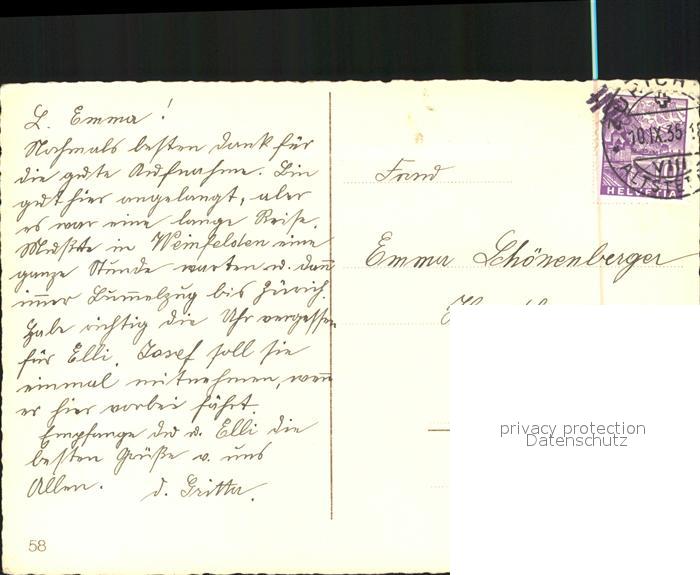 L. Emma!
Nochmals besten Dank für
die gute Aufnahme. Bin
gut hier angelangt, aber
es war eine lange Reise.
Mußte in Weinfelden eine
ganze Stunde warten u. dann
immer Bummelzug bis Zürich.
Habe richtig die Uhr vergessen
für Elli. Josef soll sie
einmal mitnehmen, wenn
er hier vorbei fährt.
Empfange du u. Elli die
besten Grüße v. uns
Allen. d. Gritta.
58
Emma Schönenberger
10.IX.35
VIII
ALTSTET
HELVETIA
privacy protection
Datenschutz